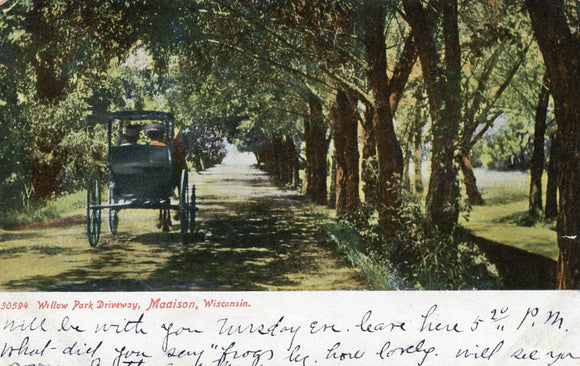 30594 Willow Park Driveway, Madison, Wisconsin.
will be with you Tuesday Eve. leave here 5 20 P.M.
What did you say "frogs leg. how lovely. will see you